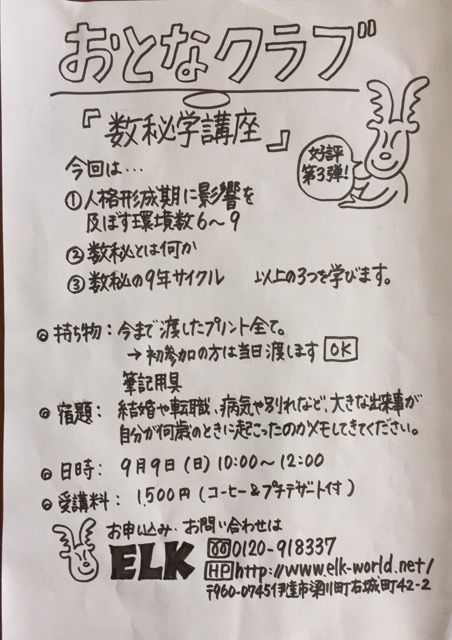 おとなクラブ
『数秘学講座』
好評
第3弾!
今回は…
①人格形成期に影響を
及ぼす環境数6～9
②数秘とは何か
③数秘の9年サイクル 以上の3つを学びます。
◎持ち物：今まで渡したプリント全て。
→初参加の方は当日渡します OK
筆記用具
◎宿題：結婚や転職、病気や別れなど、大きな出来事が
自分が何歳のときに起こったのかメモしてきてください。
◎日時：9月9日(日)10:00～12:00
◎受講料：1,500円(コーヒー&プチデザート付)
お申し込み・お問い合わせは
ELK 0120-918337
HP http://www.elk-world.net/
〒960-0745 伊達市梁川町右城町42-2